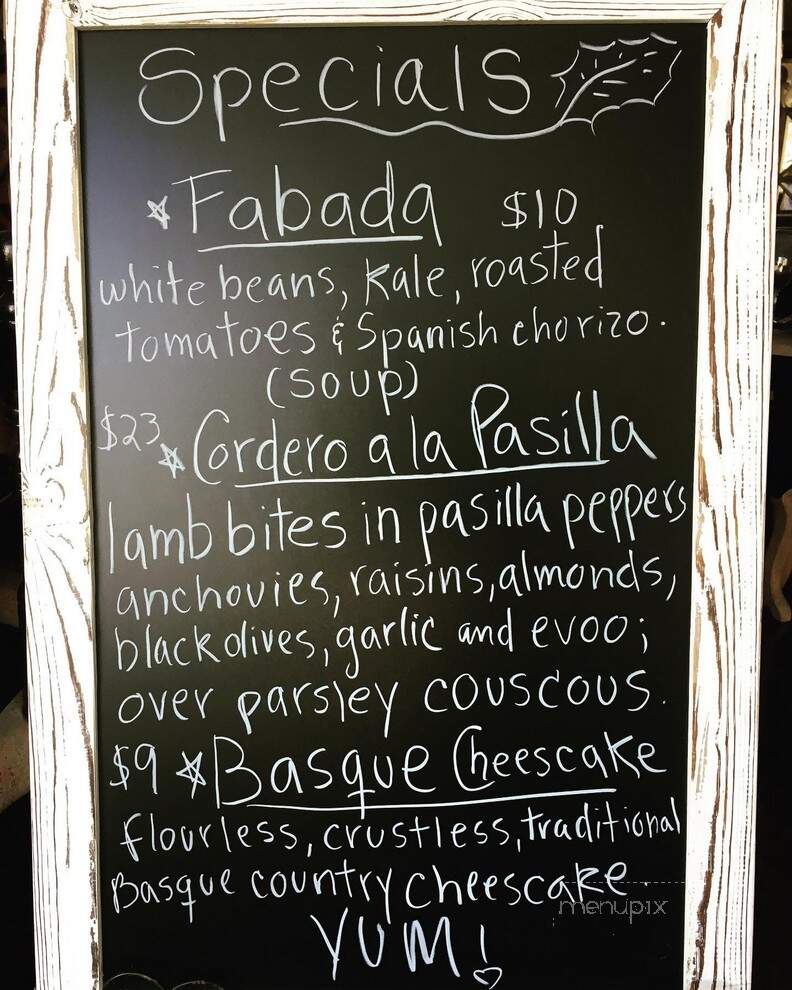 Specials
Fabada $10
white beans, kale, roasted
tomatoes & Spanish chorizo.
(soup)
$23 Cordero a la Pasilla
lamb bites in pasilla peppers
anchovies, raisins, almonds,
black olives, garlic and evoo;
over parsley couscous.
$9 Basque Cheescake
flourless, crustless, traditional
Basque country cheescake.
menupix
YUM!